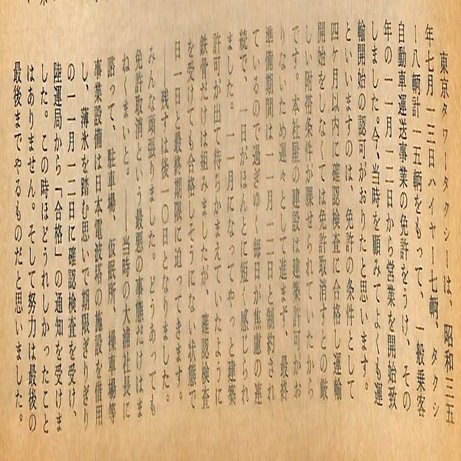 東京タワータクシーは、昭和三五
年七月一三日ハイヤー七輌、タクシ
ー八輌計一五輌をもって、一般乗客
自動車運送事業の免許をうけ、その
年の一一月一二日から営業を開始致
しました。今、当時を顧みてよくも運
輸開始の認可がおりたと思います。
といいますのは、免許の条件として
四ヶ月以内に確認検査に合格し運輸
開始をしなくては免許取消しとの厳
しい附帯条件が課せられていたから
です。本社屋の建設は建築許可がお
りないため遅々として進まず、最終
準備期間は一一月一二日と制約され
ているので過ぎゆく毎日が焦慮の連
続で、一日がほんとに短く感じられ
ました。一一月になってやっと建築
許可が出て待ちかまえていたように
鉄骨だけは組みましたが、確認検査
を受けても合格しそうにない状態で
日一日と最終期限に迫ってきます。
―残すは後一〇日となりました。
みんな頑張りました。どうあっても
免許取消しという事態はさけねばな
ねてしまいと、当時の大浦社長に
諮って、駐車場、仮眠所、操車場等
事業設備は日本電波塔の施設を借用
し、薄氷を踏む思いで期限ぎりぎり
の一一月一二日に確認検査を受け、
陸運局から「合格」の通知を受けま
した。この時ほどうれしかったこと
はありません。そして努力は最後の
最後までやるものだと思いました。